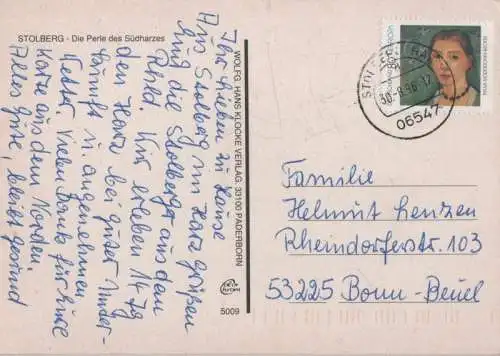 STOLBERG - Die Perle des Südharzes
Ihr Lieben zu Hause
Aus Stolberg im Harz grüßen
die Stolbergs aus dem
Rhld. Wir erleben 14 Tg
den Harz bei guter Unter-
kunft u. angenehmen
Wetter. Vielen Dank für Eure
Karte aus dem Norden.
Alles Gute, bleibt gesund
WOLFG. HANS KLOCKE VERLAG, 33100 PADERBORN
5009
30.-8.96.-17
06547
Familie
Helmut Lenzen
Rheindorferstr. 103
53225 Bonn-Beuel